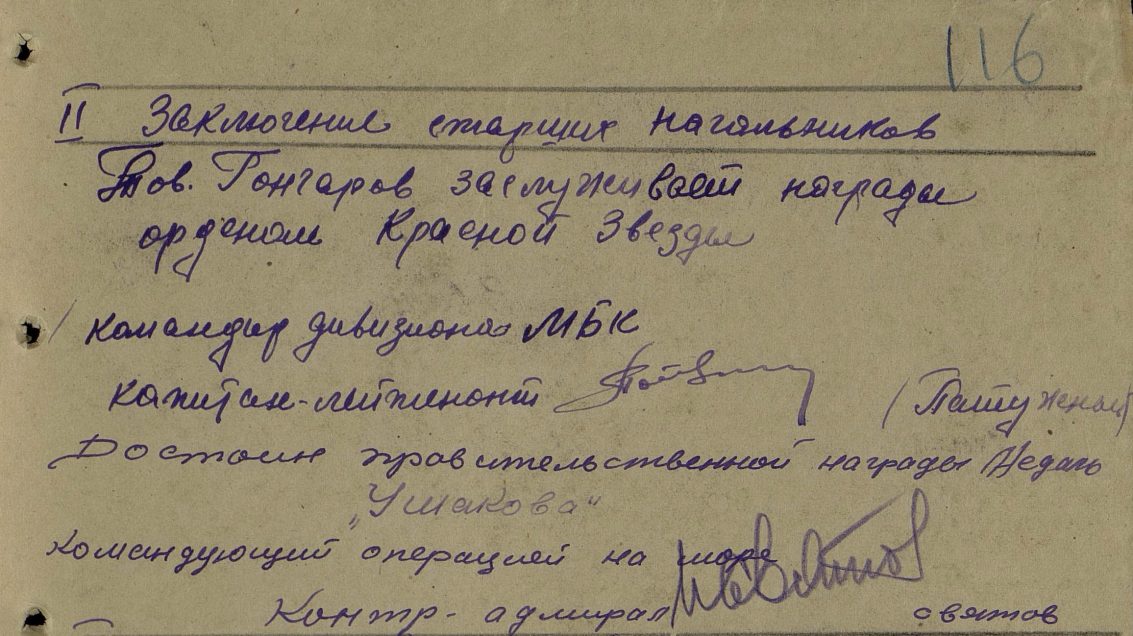 116
II Заключение старших начальников
Тов. Гончаров заслуживает награды
орденом Красной Звезды
командир дивизиона МБК
капитан-лейтенант
Достоин правительственной награды Медаль
„Ушакова“
командующий операцией на море
Контр-адмирал Святов